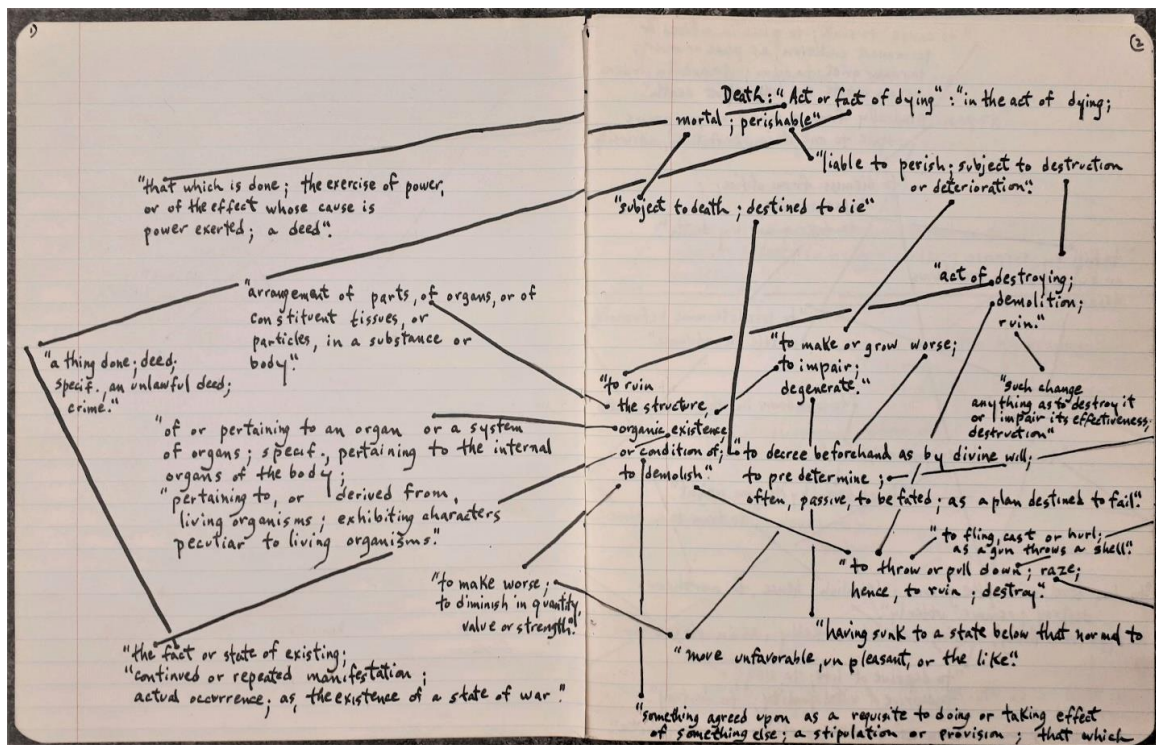 1)
"that which is done; the exercise of power,
or of the effect whose cause is
power exerted; a deed".
"arrangement of parts, of organs, or of
constituent tissues, or
particles, in a substance or
body".
"a thing done; deed;
specif., an unlawful deed;
crime."
"of or pertaining to an organ or a system
of organs; specif., pertaining to the internal
organs of the body;
"pertaining to, or derived from,
living organisms; exhibiting characters
peculiar to living organisms".
"to make worse;
to diminish in quantity,
value or strength".
"the fact or state of existing;
"continued or repeated manifestation;
actual occurrence; as, the existence of a state of war".
2
Death: "Act or fact of dying" : "in the act of dying;
mortal; perishable"
"liable to perish; subject to destruction
or deterioration".
"subject to death; destined to die"
"act of destroying;
demolition;
ruin."
"to make or grow worse;
to impair;
degenerate."
"such change
anything as to destroy it
or impair its effectiveness;
destruction"
"to ruin
the structure,
organic existence
or condition of;
to demolish"
"to decree beforehand as by divine will;
to pre determine;
often, passive, to be fated; as a plan destined to fail".
"to fling, cast or hurl;
as a gun throws a shell".
"to throw or pull down; raze;
hence, to ruin; destroy".
"having sunk to a state below that normal to
"move unfavorable, un pleasant, or the like".
"something agreed upon as a requisite to doing or taking effect
of something else; a stipulation or provision; that which